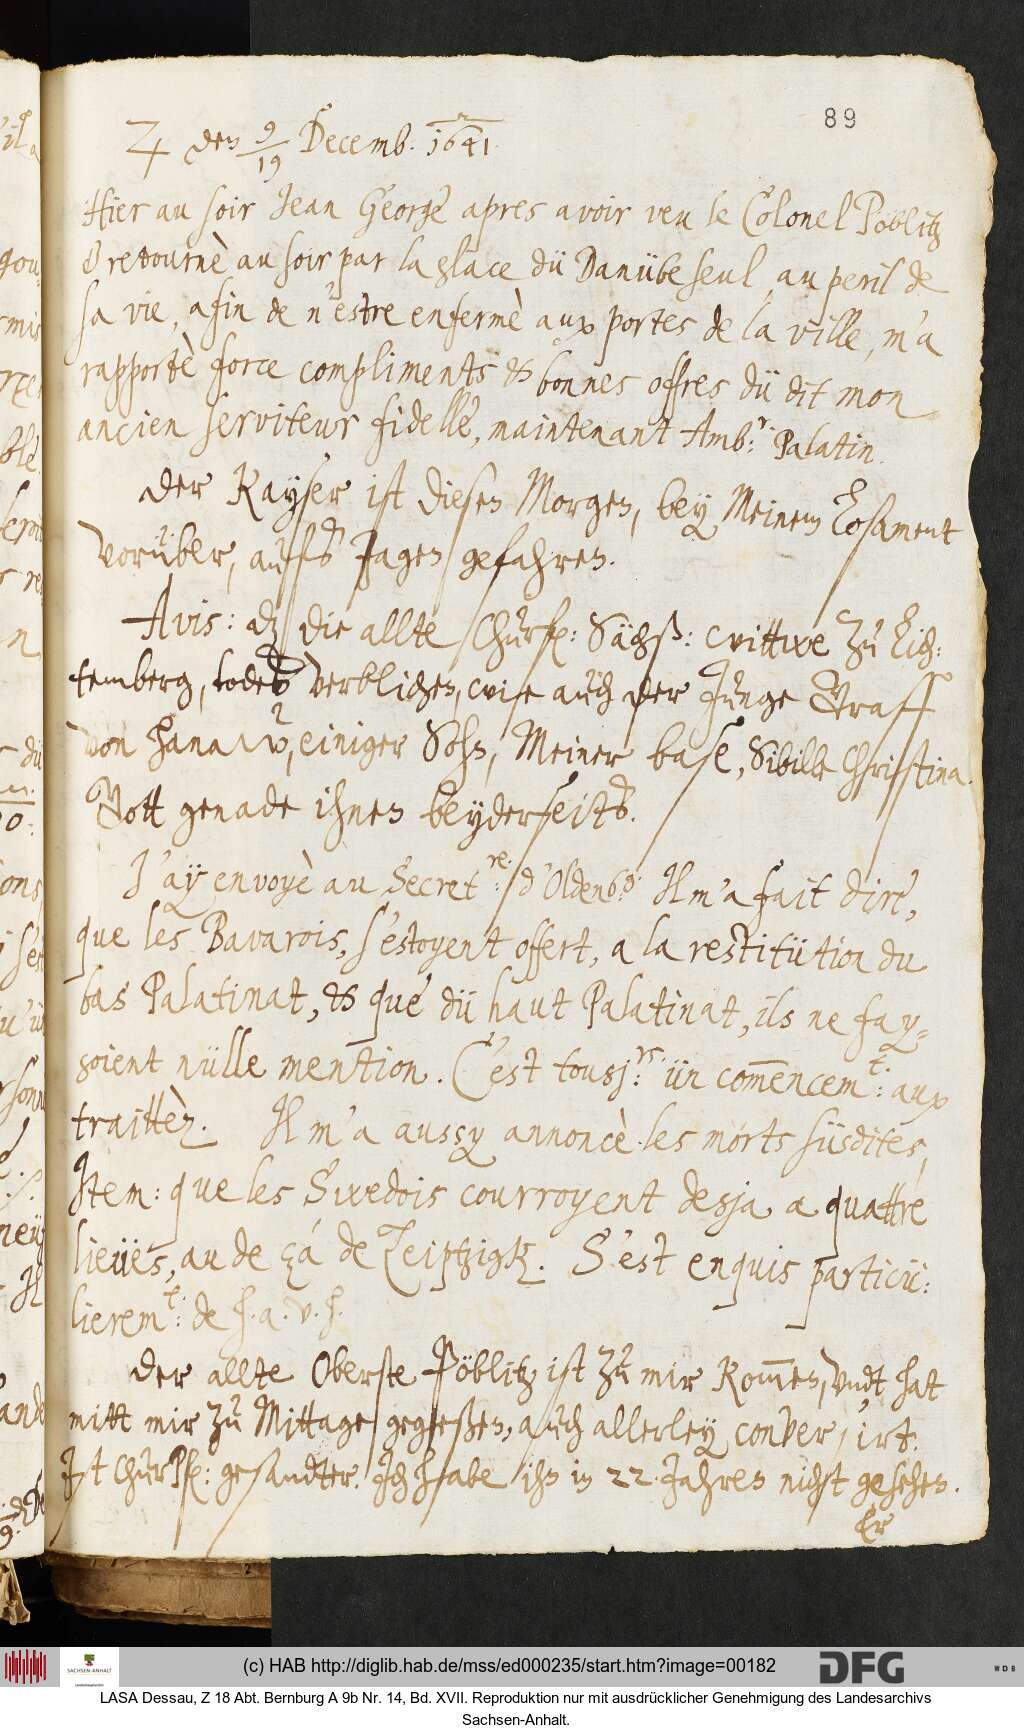 89
♃ den 9/19 Decemb. 1641.
Hier au soir Jean George apres avoir veu le Colonel Pöblitz
& retournè au soir par la glace dü Danübe seul, au peril de
sa vie, afin de n'estre enfermè aux portes de la ville, m'a
rapportè force compliments & bonnes offres dü dit mon
ancien serviteur fidelle, maintenant Amb:r Palatin.
Der Kayser ist diesen Morgen, bey Meinem Losament
vorüber, aufs Jagen gefahren.
Avis: dz die allte Churf: Sächß: wittwe zu Lich:
temberg, todes verblichen, wie auch der Junge Graff
von Hanaw, einiger Sohn, Meiner base, Sibille Christina.
Gott genade ihnen beyderseits.
J'ay envoyè au Secret:re d'Oldenb: Il m'a fait dire,
que les Bavarois, s'estoyent offert, a la restitütion du
bas Palatinat, & que dü haut Palatinat, ils ne fay=
soient nülle mention. C'est tousj:rs ün commencem:t aux
traittèz. Il m'a aussy annoncè les morts süsdites,
Item: que les Swedois courroyent desja a quattre
lieües, au de çá de Leiptzigk. S'est enquis particü:
lierem:t de
Der allte Oberste Pöblitz ist zu mir kommen, undt hat
mitt mir zu Mittage gegeßen, auch allerley conversirt.
Ist ChurPf: gesandter. Ich habe ihn in 22 Jahren nicht gesehen.
Er
(c) HAB http://diglib.hab.de/mss/ed000235/start.htm?image=00182
SACHSEN-ANHALT
DFG
WDB
LASA Dessau, Z 18 Abt. Bernburg A 9b Nr. 14, Bd. XVII. Reproduktion nur mit ausdrücklicher Genehmigung des Landesarchivs
Sachsen-Anhalt.